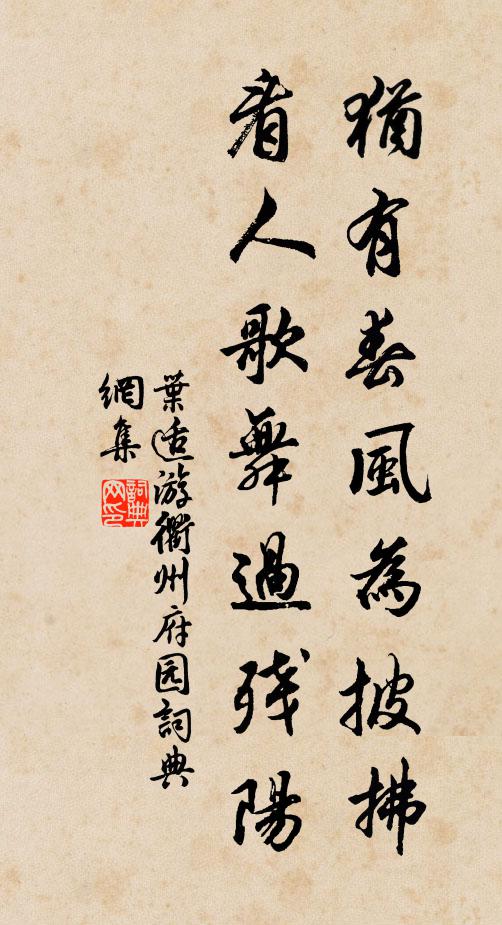 猶有春風為披拂
看人歌舞過残陽
葉适游衢州府园詞典
網集
詞典
网印